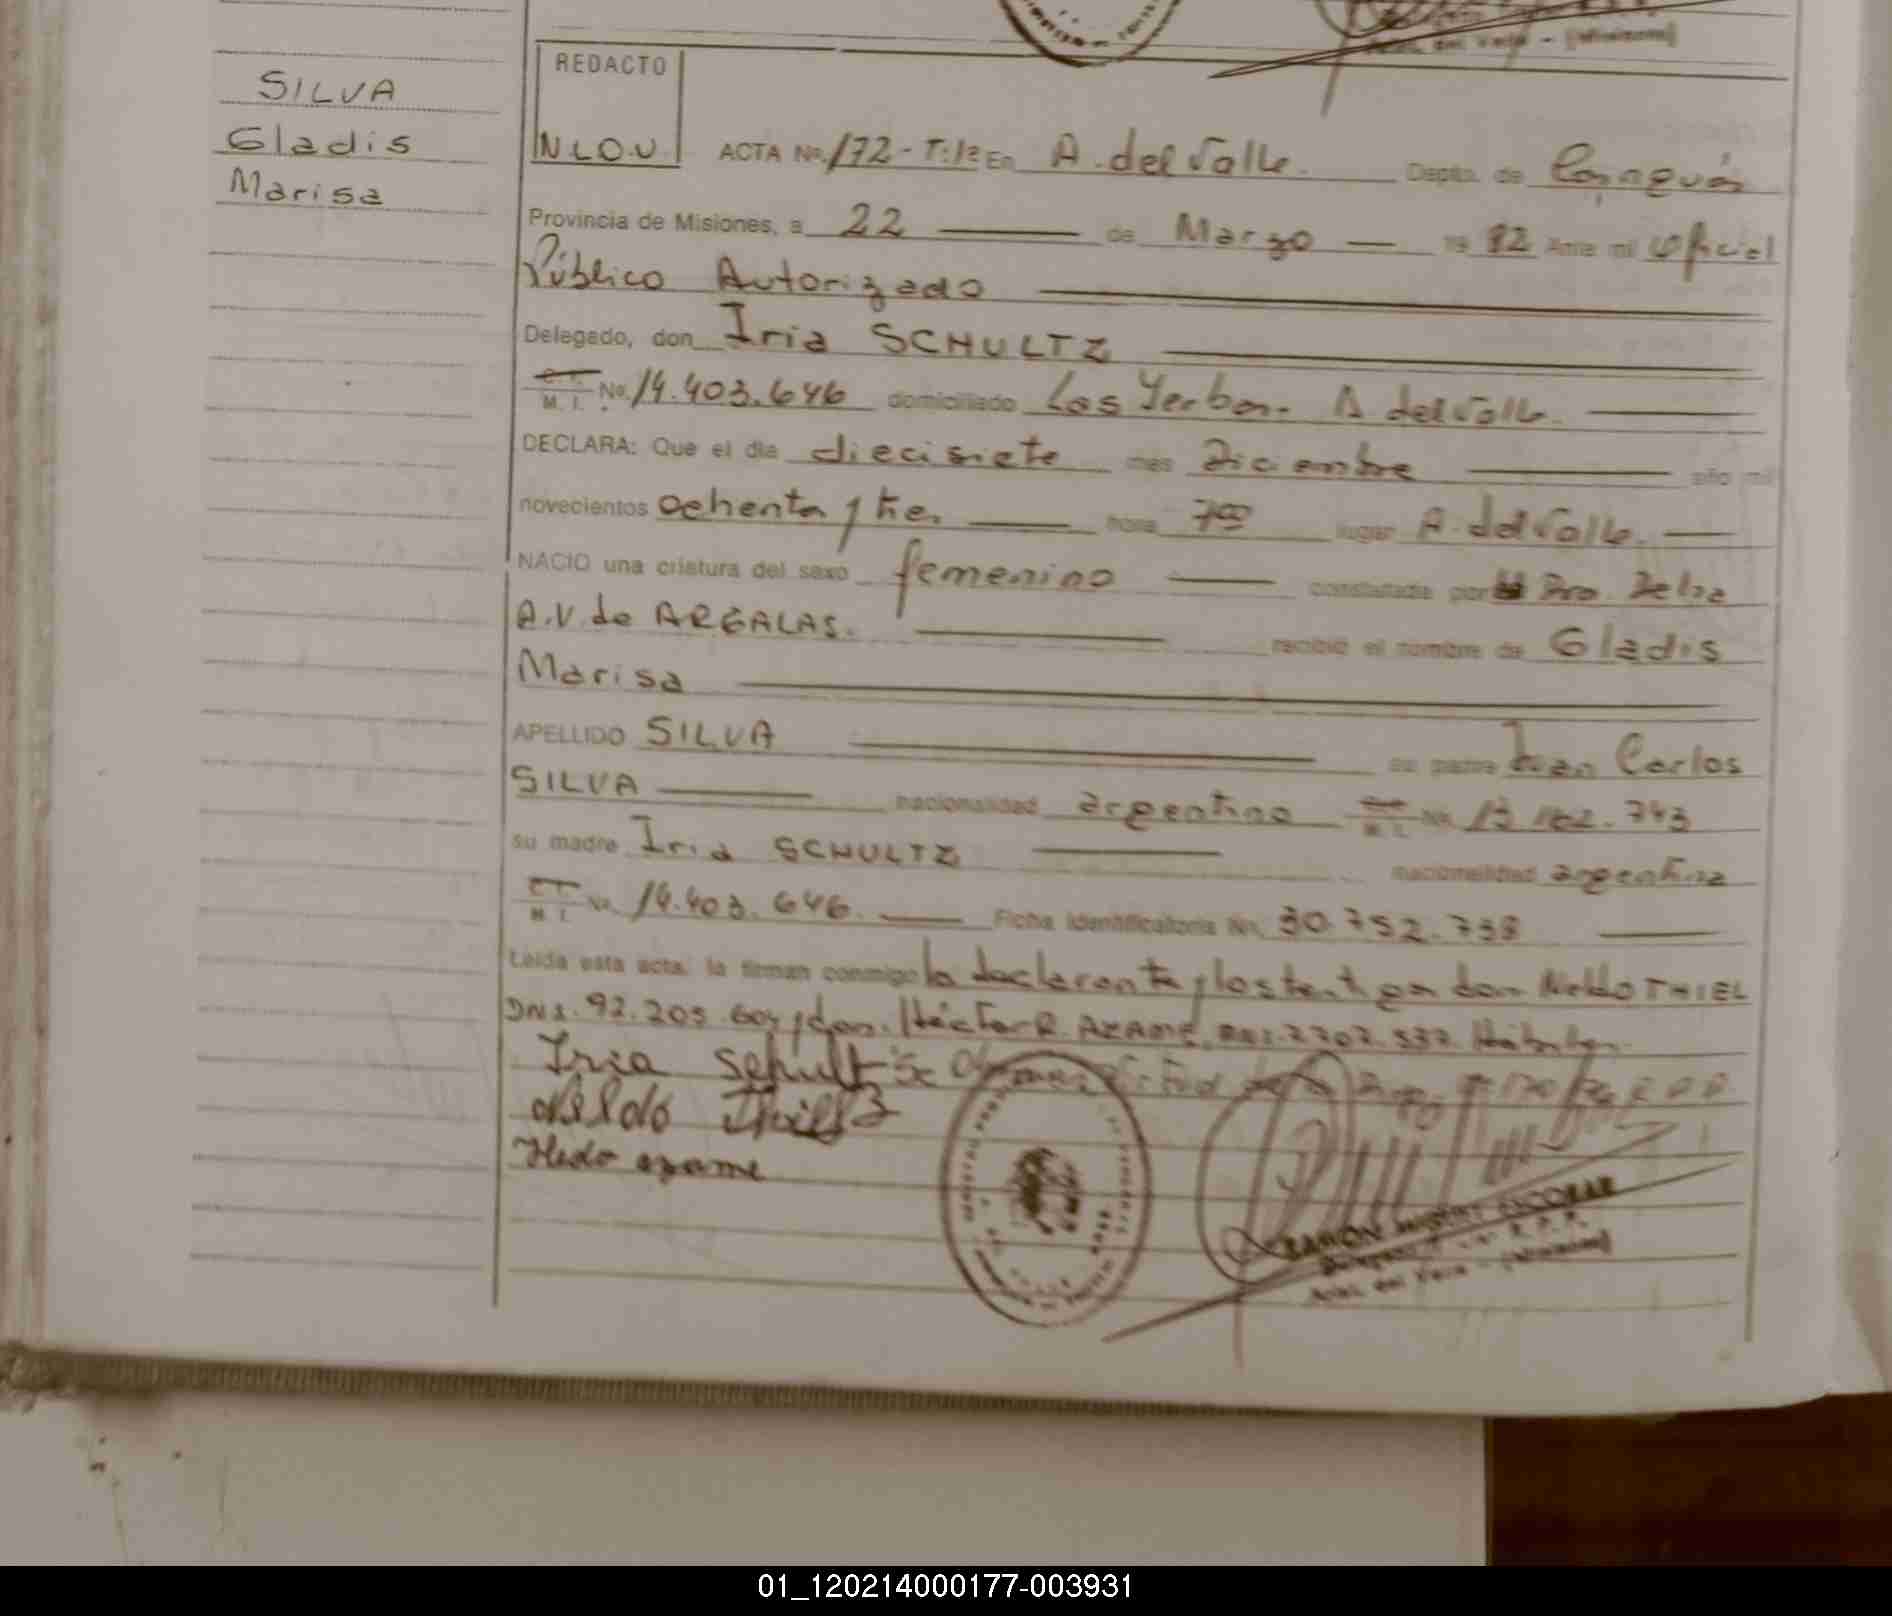 SILVA
Gladis
Marisa
REDACTO
N L O.V.
ACTA No. 172 - T: 1º En A. del Valle. Depto. de Cainguás
Provincia de Misiones, a 22 de Marzo 19 92 Ante mi Oficial
Público Autorizado
Delegado, don Iria SCHULTZ
C. I. M. I. No. 14.403.646 domiciliado Las Yerbas. A del Valle.
DECLARA: Que el dia diecisiete mes Diciembre año mil
novecientos ochenta y tres hora 7 00 lugar A. del Valle.
NACIO una criatura del sexo femenino constatada por Dra. Delia
A.V. de ARGALAS. recibió el nombre de Gladis
Marisa
APELLIDO SILVA su padre Juan Carlos
SILVA nacionalidad argentino M. I. No.
su madre Iria SCHULTZ nacionalidad argentina
C. I. M. I. No. 14.403.646. Ficha Identificatoria No. 30.752.738
Leida esta acta, la firman conmigo la declarante y los testigos don Neldo THIEL
DNI. 92.205.604 y don Héctor R. AZAME
Iria Schultz
Neldo Thiel
azame
RAMON MIGUEL ESCOBAR
Aris. del Valle - (Misiones)
01_120214000177-003931